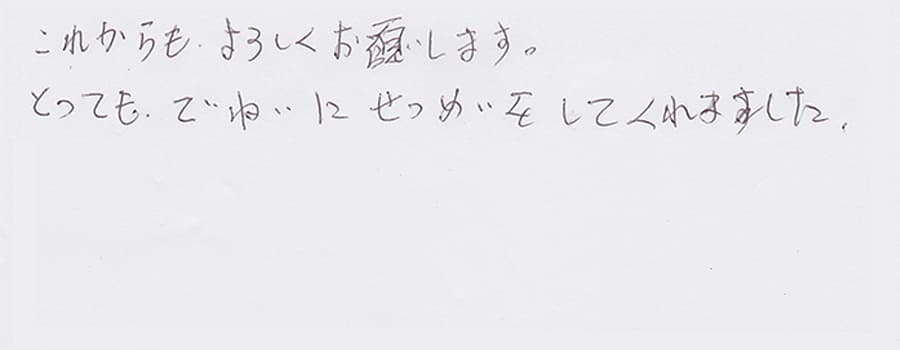 これからも、よろしくお願いします。
とっても、でいねいにせつめいをしてくれました。